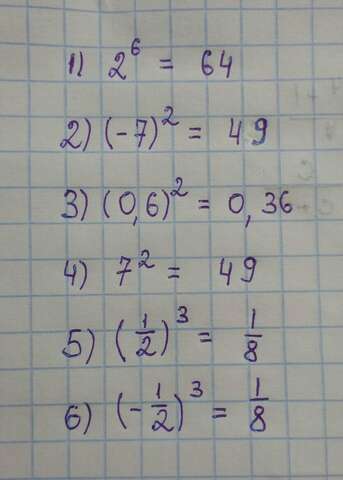 1) 2⁶ = 64
2) (-7)² = 49
3) (0,6)² = 0,36
4) 7² = 49
5) (1/2)³ = 1/8
6) (-1/2)³ = 1/8